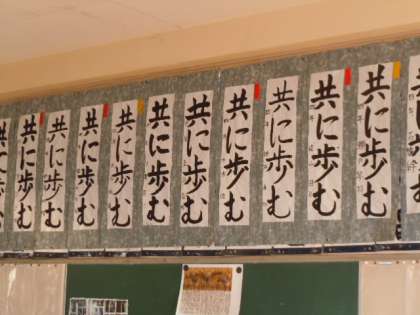 共に歩む
共に歩む
共に歩む
共に歩む
共に歩む
共に歩む
共に歩む
共に歩む
共に歩む
共に歩む
共に歩む